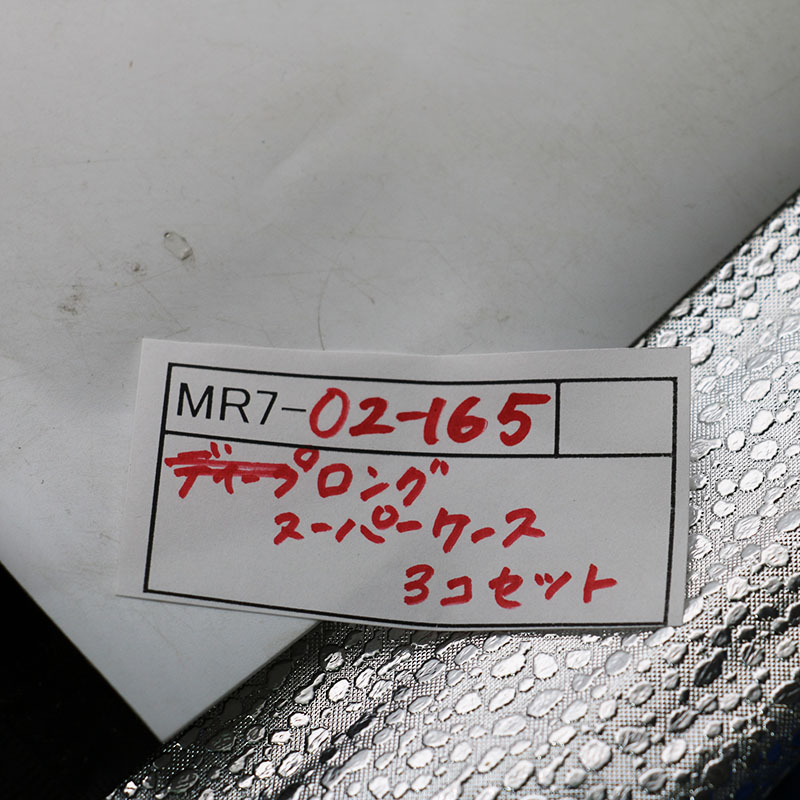 MR7-02-165
ディープロング
スーパーケース
3コセット